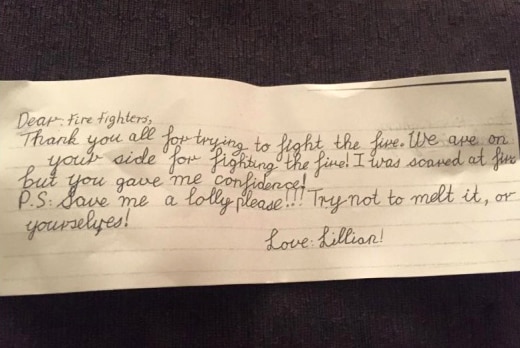 Dear: Fire Fighters,
Thank you all for trying to fight the fire. We are on
your side for fighting the fire! I was scared at first
but you gave me confidence!
P.S: Save me a lolly please!!! Try not to melt it, or
yourselves!
Love: Lillian!